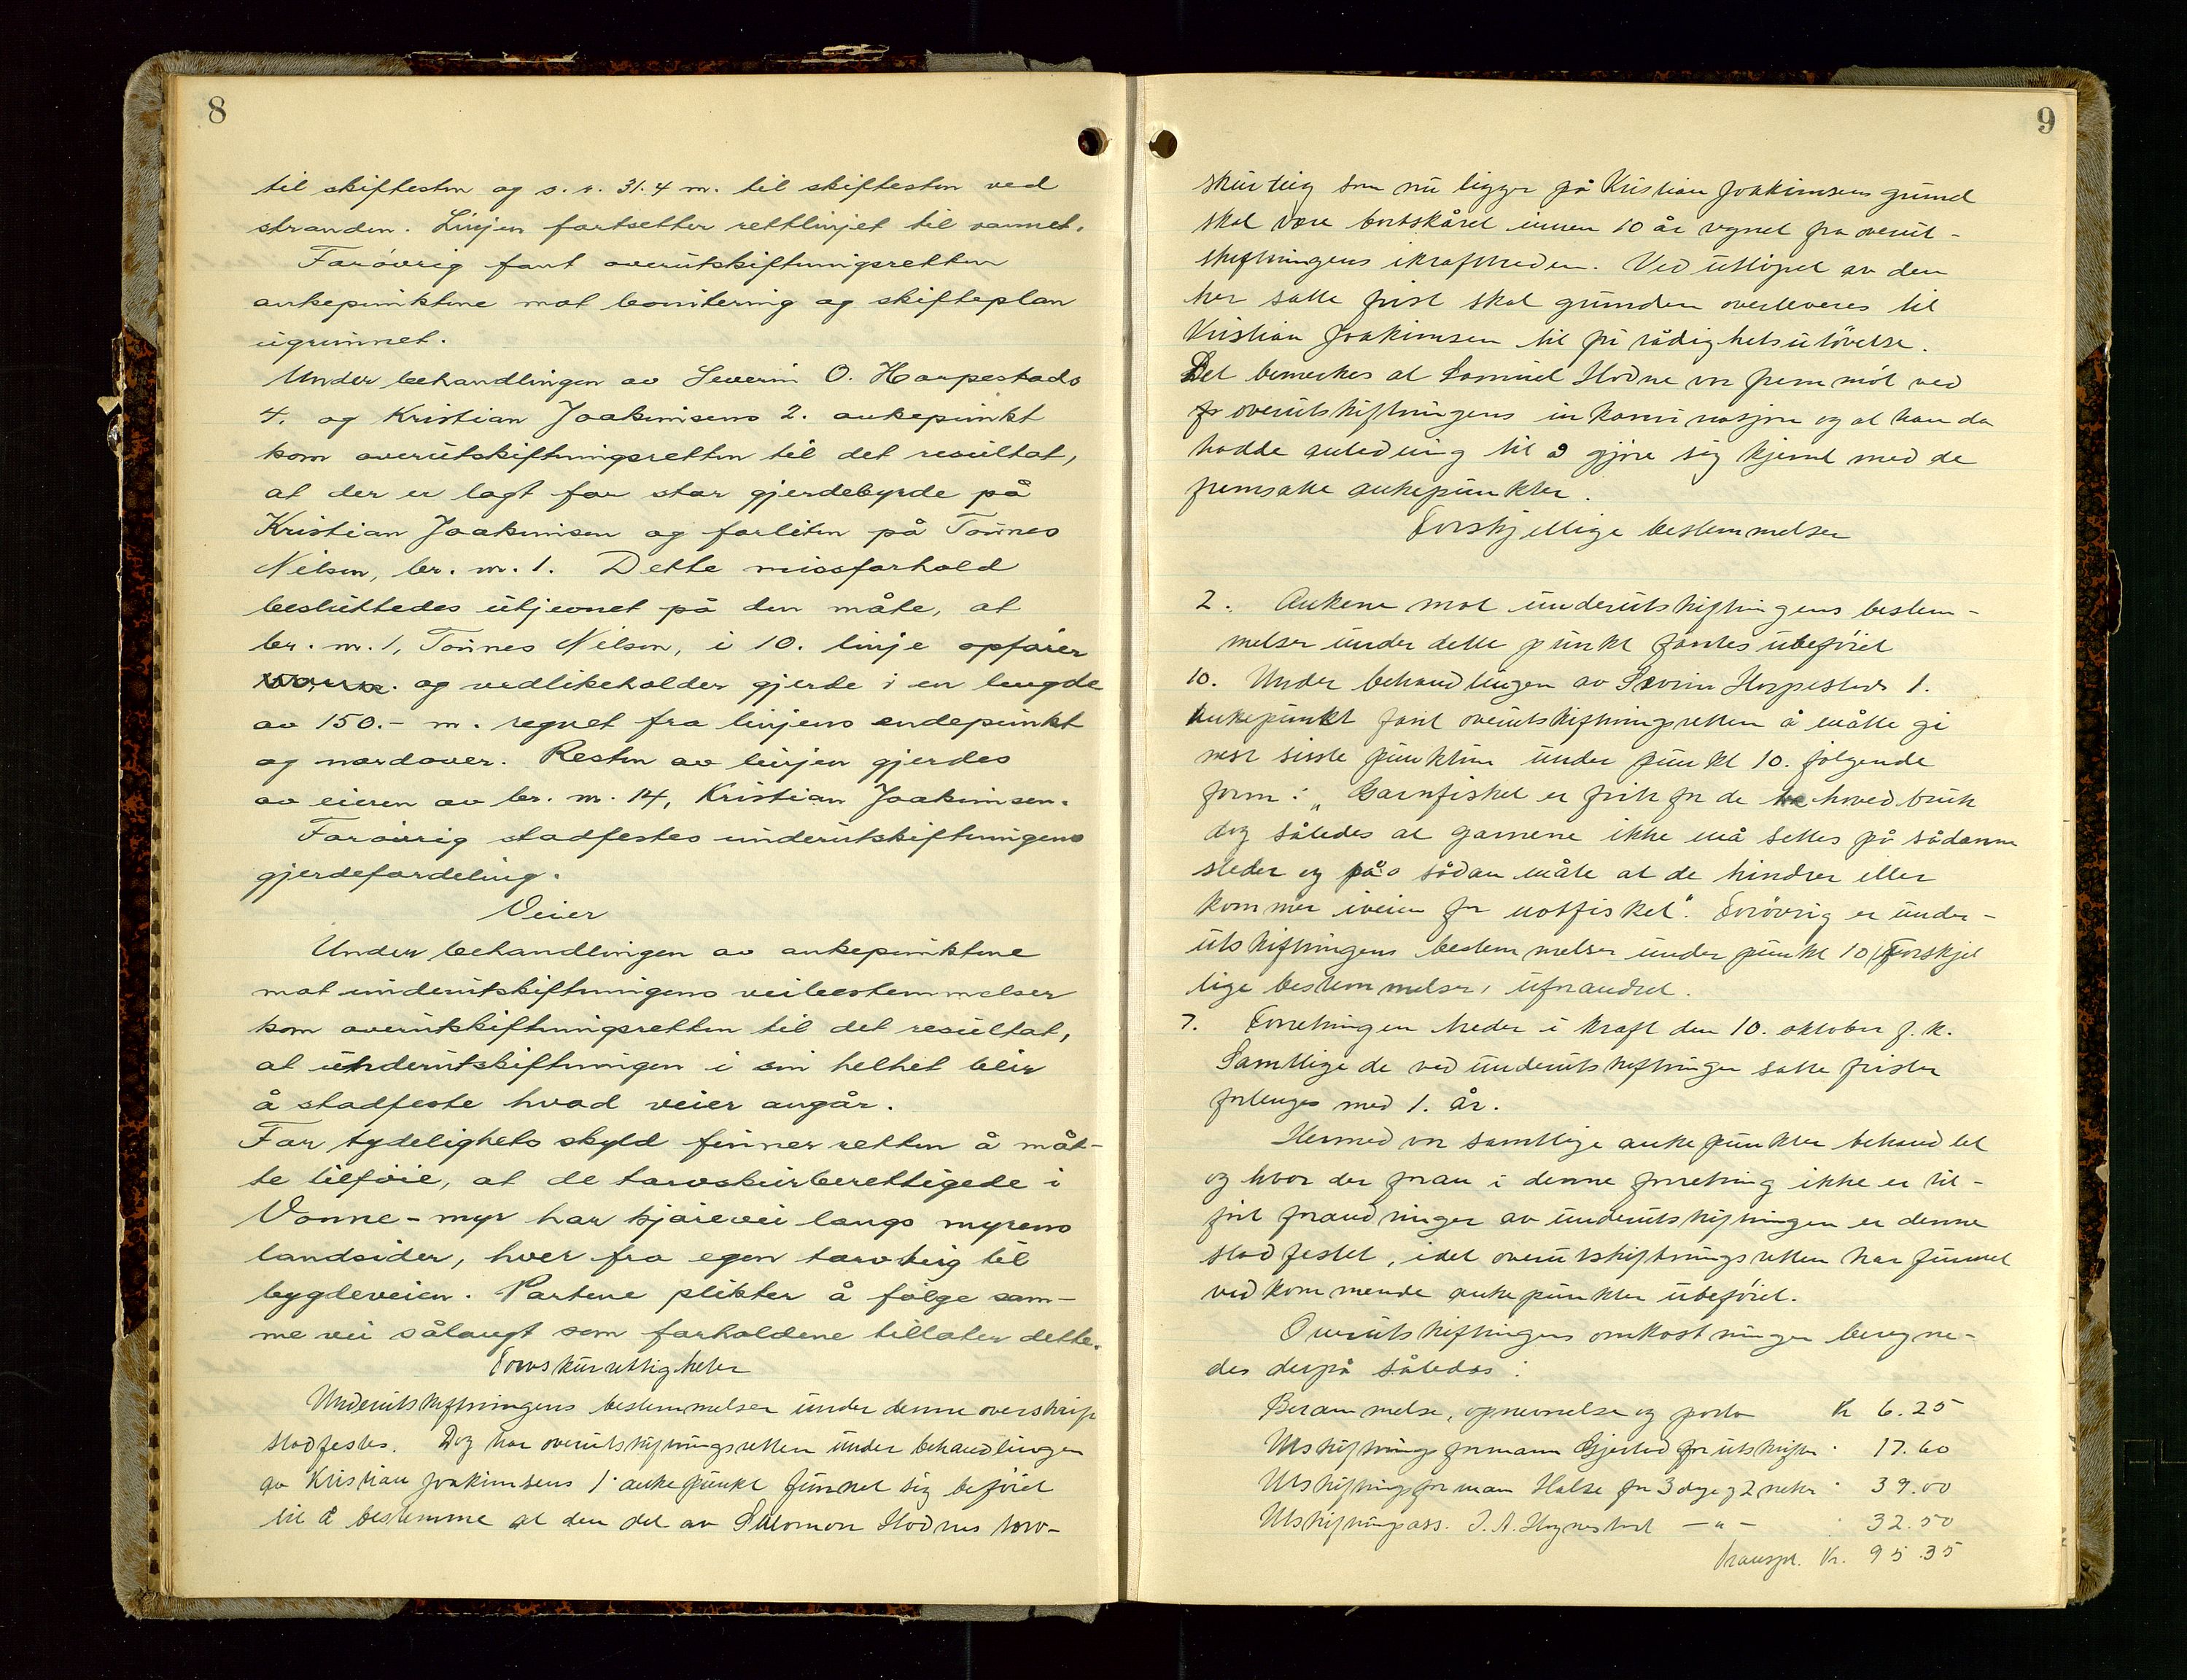 8
til skiftesten og s. v. 31.4 m. til skiftesten ved
stranden. Linjen fortsetter rettlinjet til vannet.
Forøvrig fant overutskiftningsretten
ankepunktene mot bonitering og skifteplan
ugrunnet.
Under behandlingen av Severin O. Harpestads
4. og Kristian Joakimsens 2. ankepunkt
kom overutskiftningsretten til det resultat,
at der er lagt for stor gjerdebyrde på
Kristian Joakimsen og forliten på Tønnes
Nilsen, br. nr. 1. Dette missforhold
besluttedes utjevnet på den måte, at
br. nr. 1, Tønnes Nilsen, i 10. linje opfører
og vedlikeholder gjerde i en lengde
av 150.- m. regnet fra linjens endepunkt
og nordover. Resten av linjen gjerdes
av eieren av br. nr. 14, Kristian Joakimsen.
Forøvrig stadfestes underutskiftningens
gjerdefordeling.
Veier
Under behandlingen av ankepunktene
mot underutskiftningens veibestemmelser
kom overutskiftningsretten til det resultat,
at underutskiftningen i sin helhet blir
å stadfeste hvad veier angår.
For tydelighets skyld finner retten å måt-
te tilføie, at de torvskurberettigede i
Vonne-myr har kjørevei langs myrens
landsider, hver fra egen torvteig til
bygdeveien. Partene plikter å følge sam-
me vei sålangt som forholdene tillater dette.
Torvskurrettigheter
Underutskiftningens bestemmelser under denne overskrift
stadfestes. Dog har overutskiftningsretten under behandlingen
av Kristian Joakimsens 1. ankepunkt funnet sig beføiet
til å bestemme at den del av Salomon Hodnes torv-
9
skurteig som nu ligger på Kristian Joakimsens grund
skal være bortskåret innen 10 år regnet fra overut-
skiftningens ikrafttreden. Ved utløpet av den
her satte frist skal grunden overleveres til
Kristian Joakimsen til fri rådighetsutøvelse.
Det bemerkes at Samuel Hodne var fremmøt ved
overutskiftningens inkaminasjon og at han da
hadde anledning til å gjøre sig kjennt med de
fremsatte ankepunkter.
Forskjellige bestemmelser
2. Ankene mot underutskiftningens bestem-
melser under dette punkt fantes ubeføiet
10. Under behandlingen av Severin Harpestads 1.
ankepunkt fant overutskiftningsretten å måtte gi
nest siste punktum under punkt 10. følgende
form: „Garnfisket er fritt for de hovedbruk
dog således at garnene ikke må settes på sådanne
steder og på sådan måte at de hindrer eller
kommer iveien for notfisket". Forøvrig er under-
utskiftningens bestemmelser under punkt 10, Forskjel
lige bestemmelser, uforandret.
7. Forretningen treder i kraft den 10. oktober f. k.
Samtlige de ved underutskiftningen satte frister
forlenges med 1. år.
Hermed var samtlige ankepunkter behandlet
og hvor der foran i denne forretning ikke er til-
ført forandringer av underutskiftningen er denne
stadfestet, idet overutskiftningsretten har funnet
vedkommende ankepunkter ubeføiet.
Overutskiftningens omkostninger beregne-
des derpå således:
Berammelse, opnevnelse og porto Kr 6.25
Utskiftningsformann Gjersted for utskrifter " 17.60
Utskiftningsformann Halse for 3 dage og 2 netter " 39.00
Utskiftningsass. J. A. Hognestad — " — " 32.50
Transport. Kr. 95.35